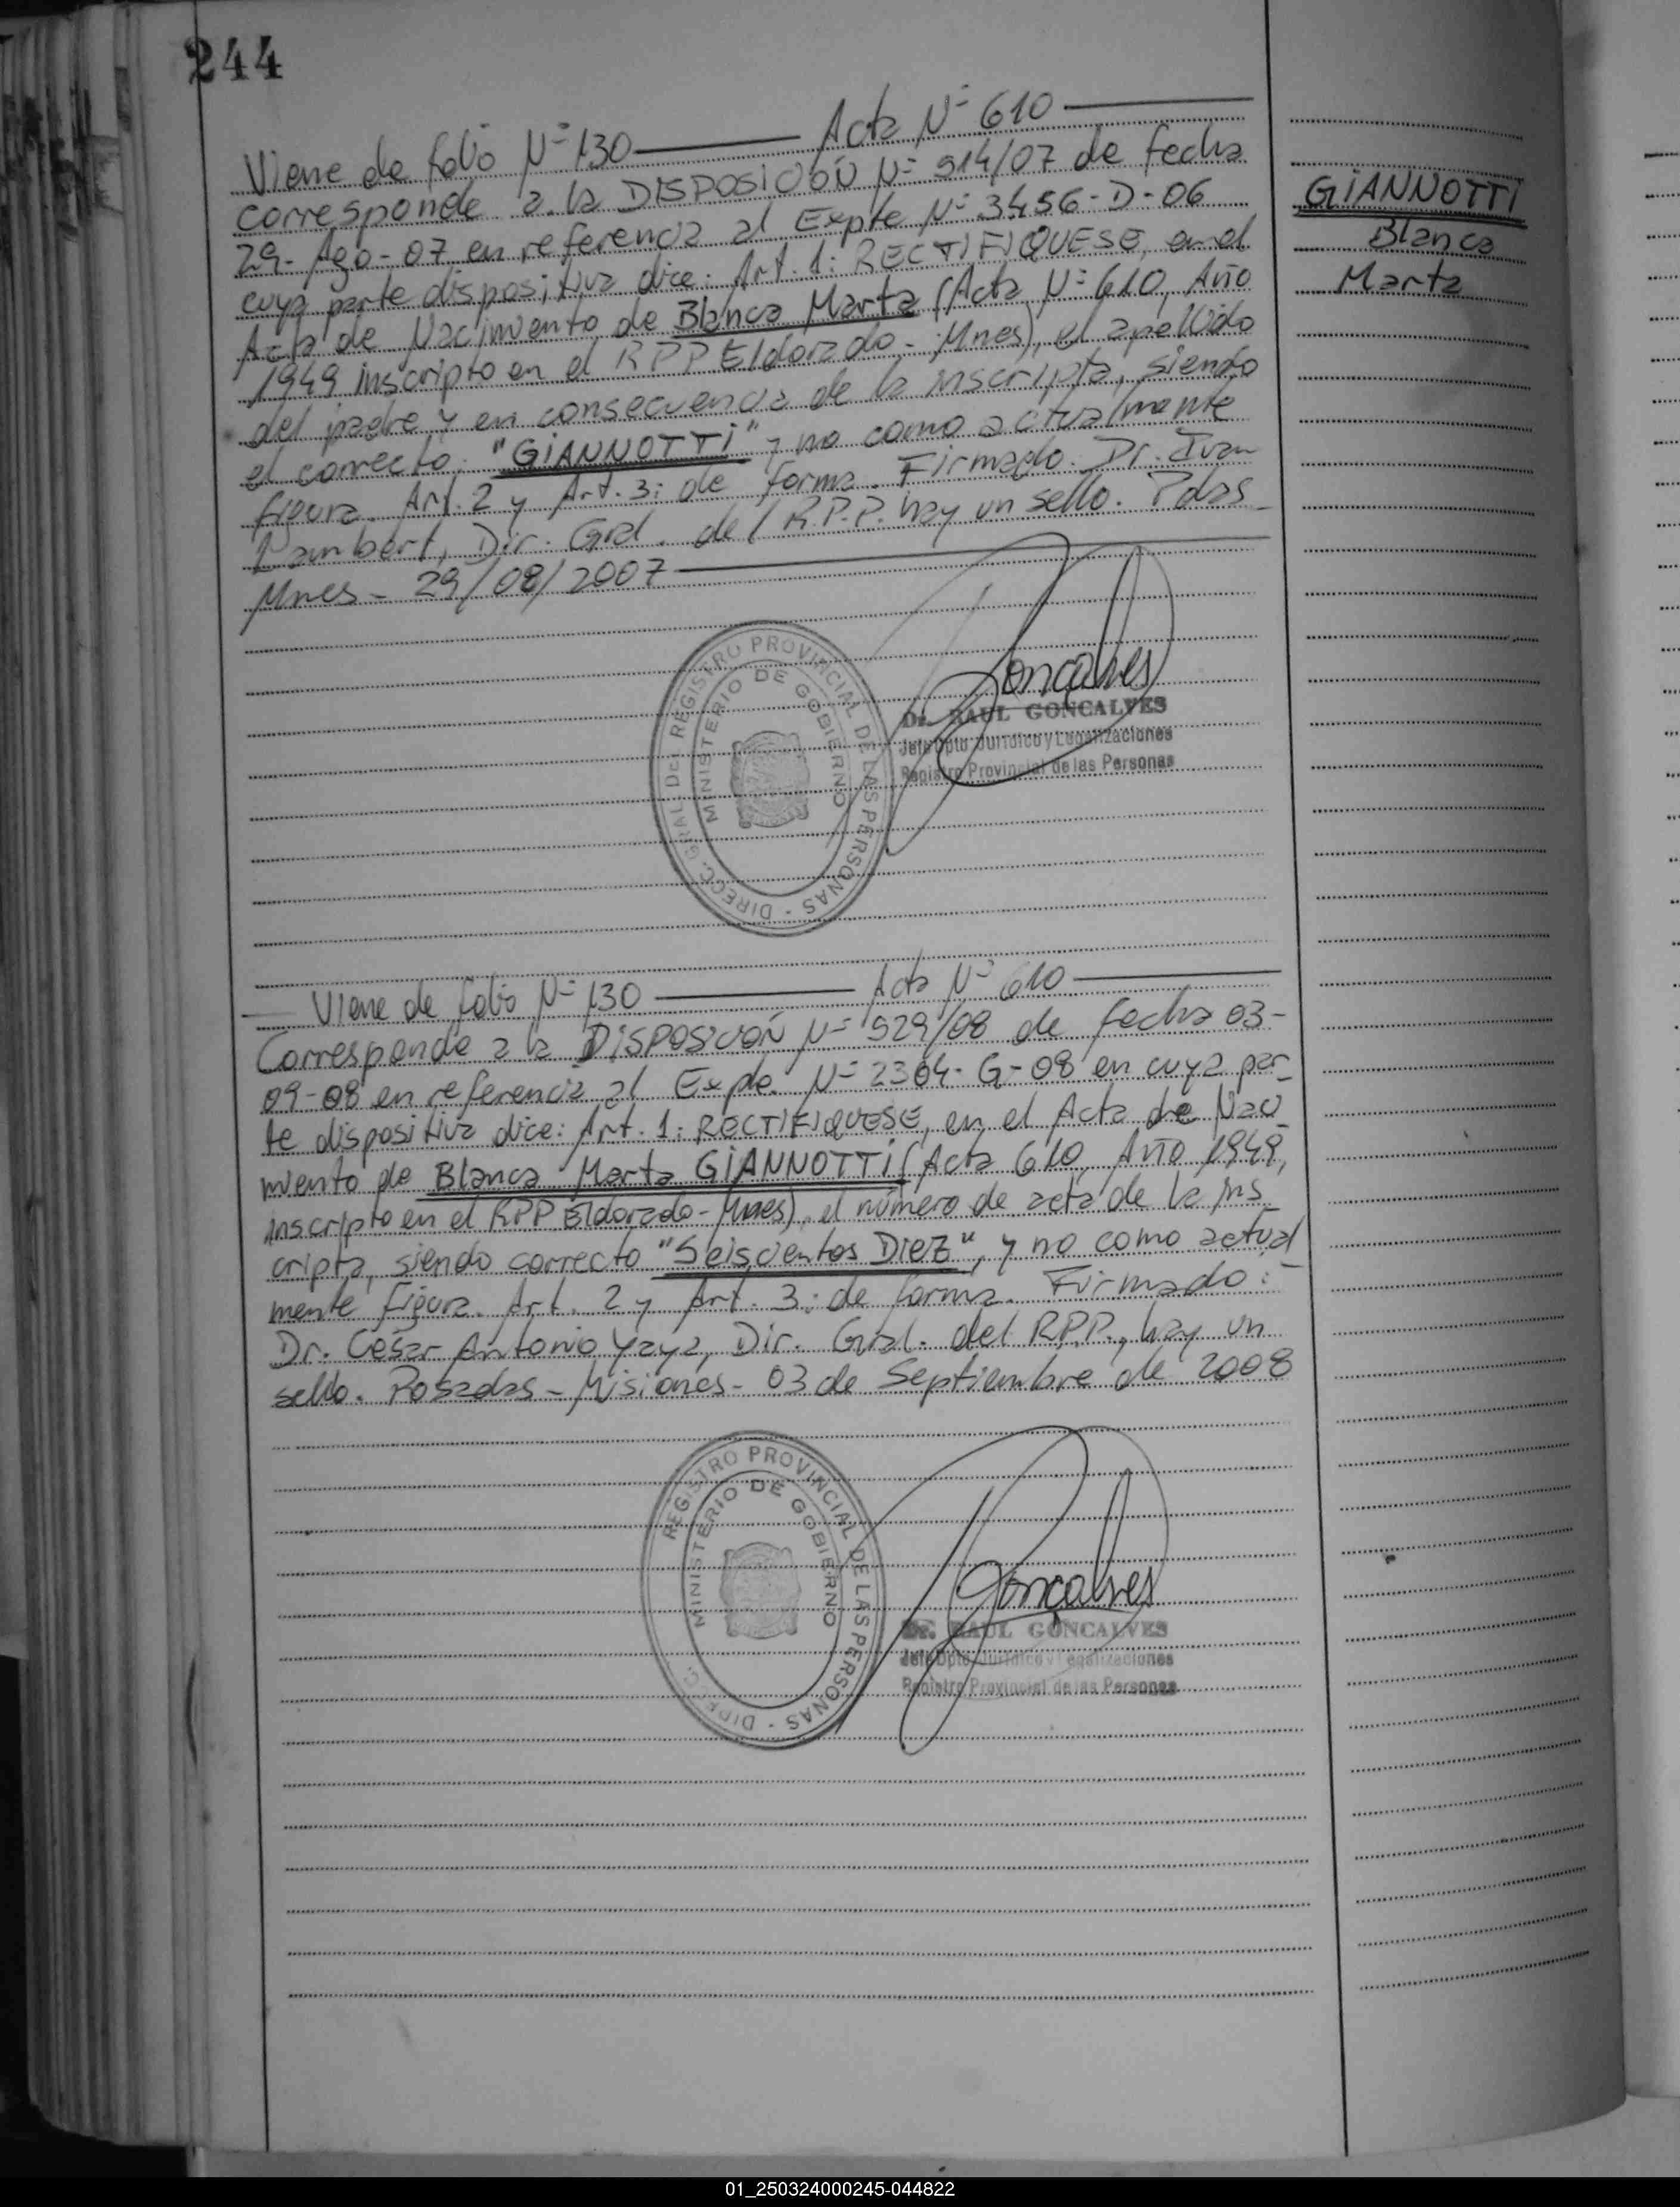 244
Viene de folio Nº 130 Acta Nº 610
corresponde a la DISPOSICIÓN Nº 914/07 de fecha
29-Ago-07 en referencia al Expte Nº 3456-D-06
cuya parte dispositiva dice: Art. 1: RECTIFIQUESE, en el
Acta de Nacimiento de Blanca Marta (Acta Nº 610, Año
1949 inscripto en el RPP Eldorado - Mnes), el apellido
del padre y en consecuencia de la inscripta, siendo
el correcto: "GIANNOTTI" y no como actualmente
figura. Art. 2 y Art. 3: de forma. Firmado. Dr. Ivan
Lambert, Dir. Gral. del R.P.P. hay un sello. Pdas-
Mnes - 29/08/2007
GIANNOTTI
Blanca
Marta
DIRECC. GRAL. DEL REGISTRO PROVINCIAL DE LAS PERSONAS -
MINISTERIO DE GOBIERNO
Gonçalves
Dr. RAUL GONCALVES
Jefe Dpto. Jurídico y Legalizaciones
Registro Provincial de las Personas
Viene de folio Nº 130 Acta Nº 610
Corresponde a la DISPOSICIÓN Nº 929/08 de fecha 03-
09-08 en referencia al Expde. Nº 2364-G-08 en cuya par-
te dispositiva dice: Art. 1: RECTIFIQUESE, en el Acta de Naci-
miento de Blanca Marta GIANNOTTI (Acta 610, Año 1949,
inscripto en el RPP Eldorado-Mnes), el número de acta de la ins-
cripta, siendo correcto "Seiscientos Diez", y no como actual-
mente figura. Art. 2 y Art. 3: de forma. Firmado:
Dr. César Antonio Yaya, Dir. Gral. del RPP., hay un
sello. Posadas - Misiones - 03 de Septiembre de 2008
REGISTRO PROVINCIAL DE LAS PERSONAS -
MINISTERIO DE GOBIERNO
Gonçalves
Dr. RAUL GONCALVES
Jefe Dpto. Jurídico y Legalizaciones
Registro Provincial de las Personas
01_250324000245-044822